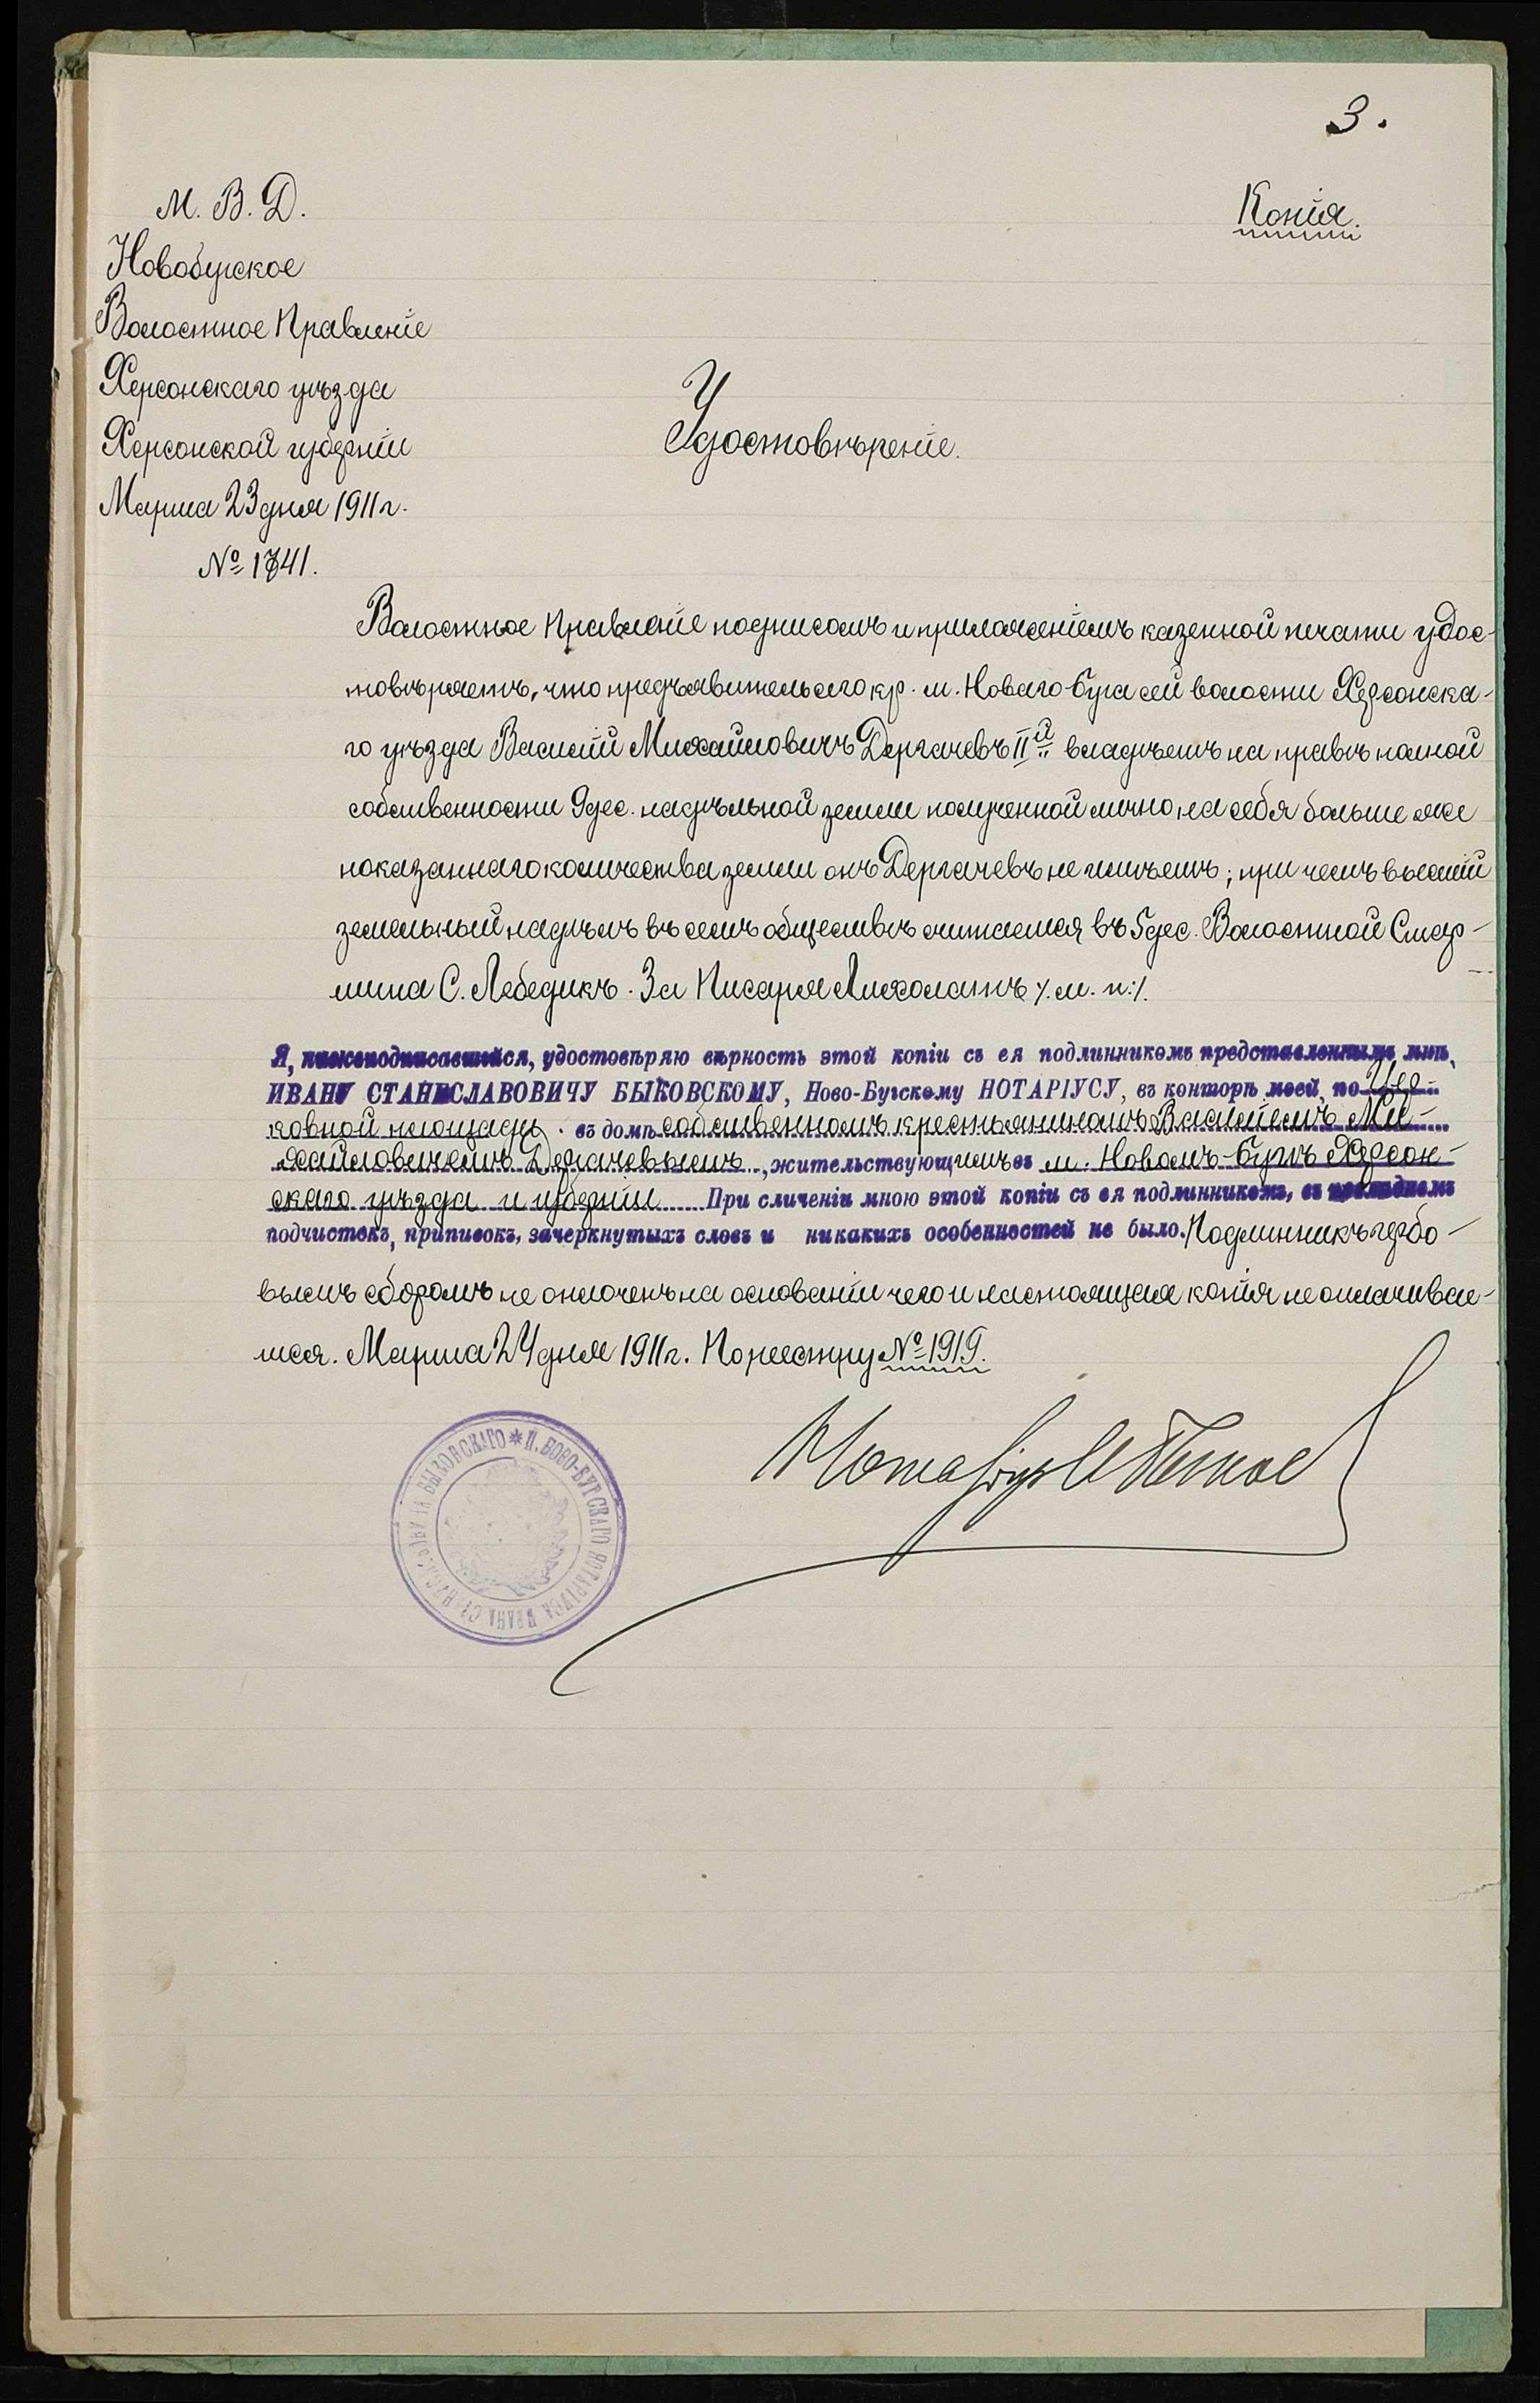 3.
М. В. Д.
Копія.
Новобугское
Волостное Правленіе
Херсонскаго уѣзда
Херсонской губерніи
Марта 23 дня 1911 г.
№ 1741.
Удостовѣреніе.
Волостное Правленіе подписомъ и приложеніемъ казенной печати удос-
товѣряетъ, что предъявитель сего кр. м. Новаго-Буга сей волости Херсонска-
го уѣзда Василій Михайловичъ Дергачевъ II й владѣетъ на правѣ полной
собственности 9 дес. надѣльной земли полученной лично на себя больше же
показаннаго количества земли онъ Дергачевъ не имѣетъ; при чемъ высшій
земельный надѣлъ въ семъ обществѣ считается въ 5 дес. Волостной Стар-
шина С. Лебедикъ. За Писаря Лихолатъ /. м. п. /.
Я, нижеподписавшійся, удостовѣряю вѣрность этой копіи съ ея подлинникомъ представленнымъ мнѣ,
ИВАНУ СТАНИСЛАВОВИЧУ БЫКОВСКОМУ, Ново-Бугскому НОТАРІУСУ, въ конторѣ моей, по Цер-
ковной площади въ домѣ собственномъ крестьяниномъ Василіемъ Ми-
хайловичемъ Дергачевымъ, жительствующимъ въ м. Новомъ-Бугѣ Херсон-
скаго уѣзда и губерніи При сличеніи мною этой копіи съ ея подлинникомъ, въ послѣднемъ
подчистокъ, приписокъ, зачеркнутыхъ словъ и никакихъ особенностей не было. Подлинникъ гербо-
вымъ сборомъ не оплоченъ на основаніи чего и настоящая копія не оплачивае-
тся. Марта 24 дня 1911 г. По реестру № 1919.
Нотаріусъ И Быков
Н. НОВО-БУГСКАГО НОТАРІУСА ИВАНА СТАНИСЛАВОВИЧА БЫКОВСКАГО